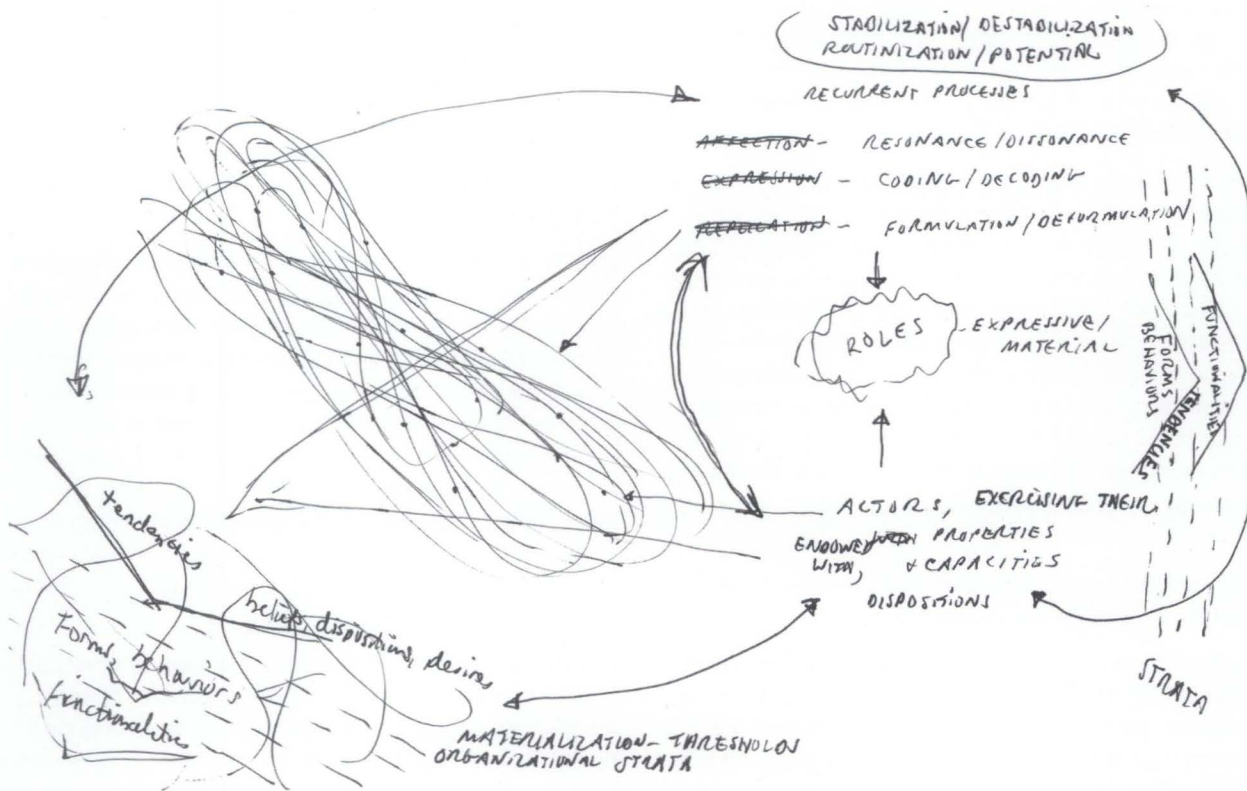 STABILIZATION/DESTABILIZATION
ROUTINIZATION/POTENTIAL
RECURRENT PROCESSES
AFFECTION - RESONANCE/DISSONANCE
EXPRESSION - CODING/DECODING
REPLICATION - FORMULATION/DEFORMULATION
ROLES
EXPRESSIVE/
MATERIAL
FORMS
BEHAVIORS
TENDENCIES
FUNCTIONALITIES
ACTORS, EXERCISING THEIR
ENDOWED WITH PROPERTIES
WITH, + CAPACITIES
DISPOSITIONS
STRATA
tendencies
beliefs, dispositions, desires
Forms, behaviors
functionalities
MATERIALIZATION - THRESHOLDS
ORGANIZATIONAL STRATA